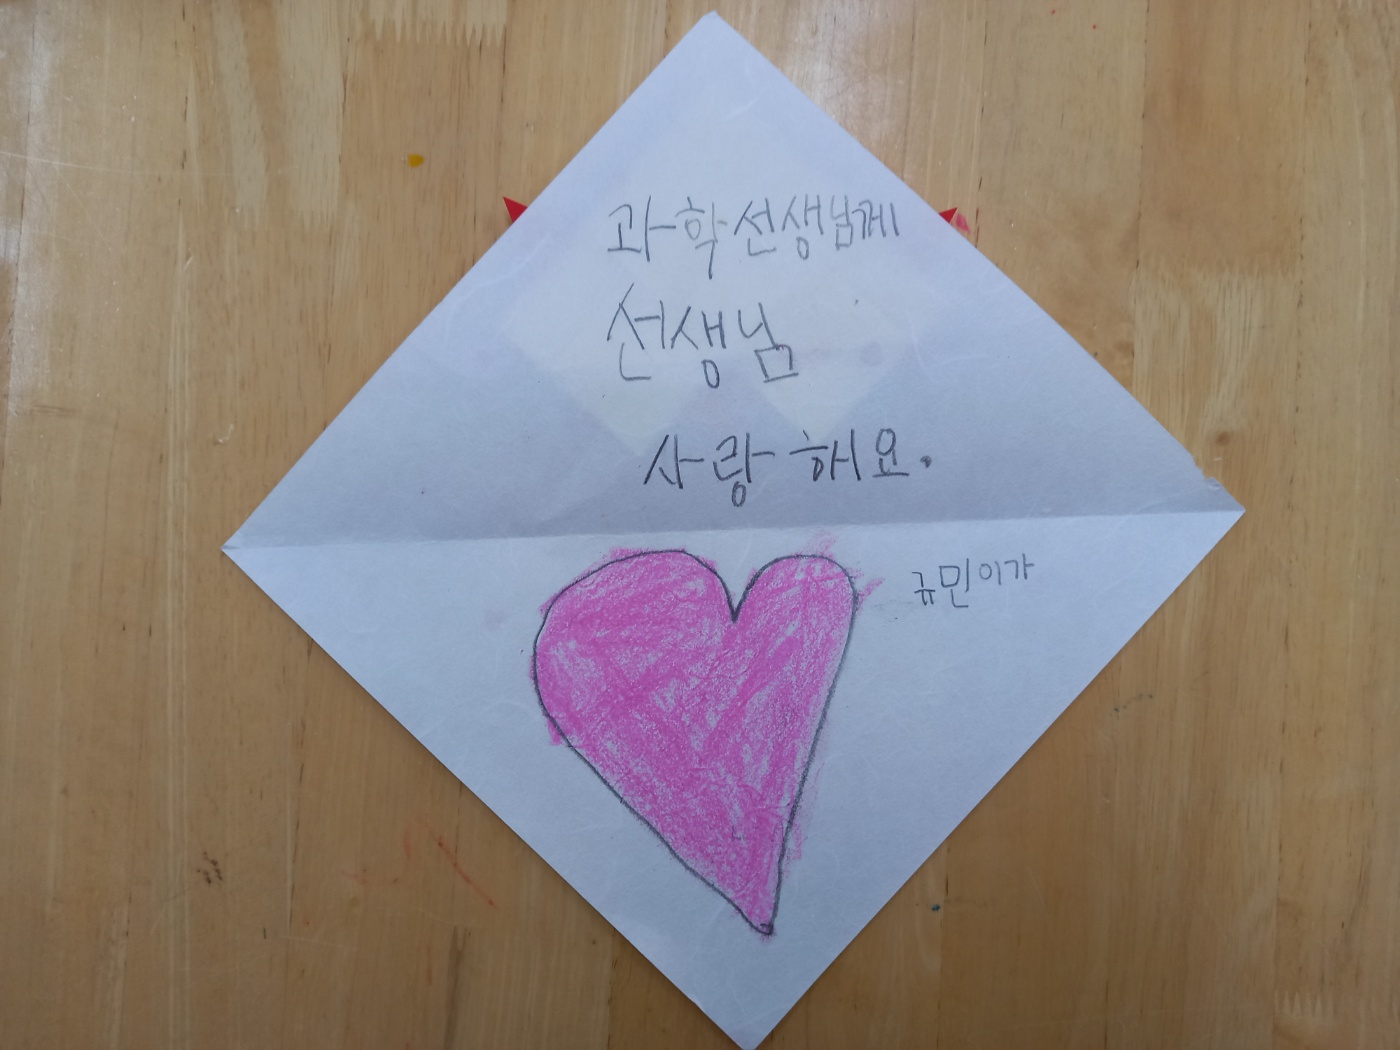 과학선생님께
선생님
사랑해요.
규민이가